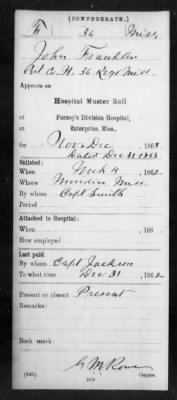 (CONFEDERATE.)
F 36 Miss.
John Franklin
Pvt Co. H. 36 Regt Miss.
Appears on
Hospital Muster Roll
of
Forney's Division Hospital,
at
Enterprise, Miss.,
for Nov & Dec, 1863
Dated Dec 31 1863
Enlisted:
When Mch 4, 1862
Where Meridian Miss.
By whom Capt Smith
Period
Attached to Hospital:
When , 186
How employed
Last paid:
By whom Capt Jackson
To what time Dec 31, 1862
Present or absent Present
Remarks:
Book mark:
G M Rowe
Copyist.